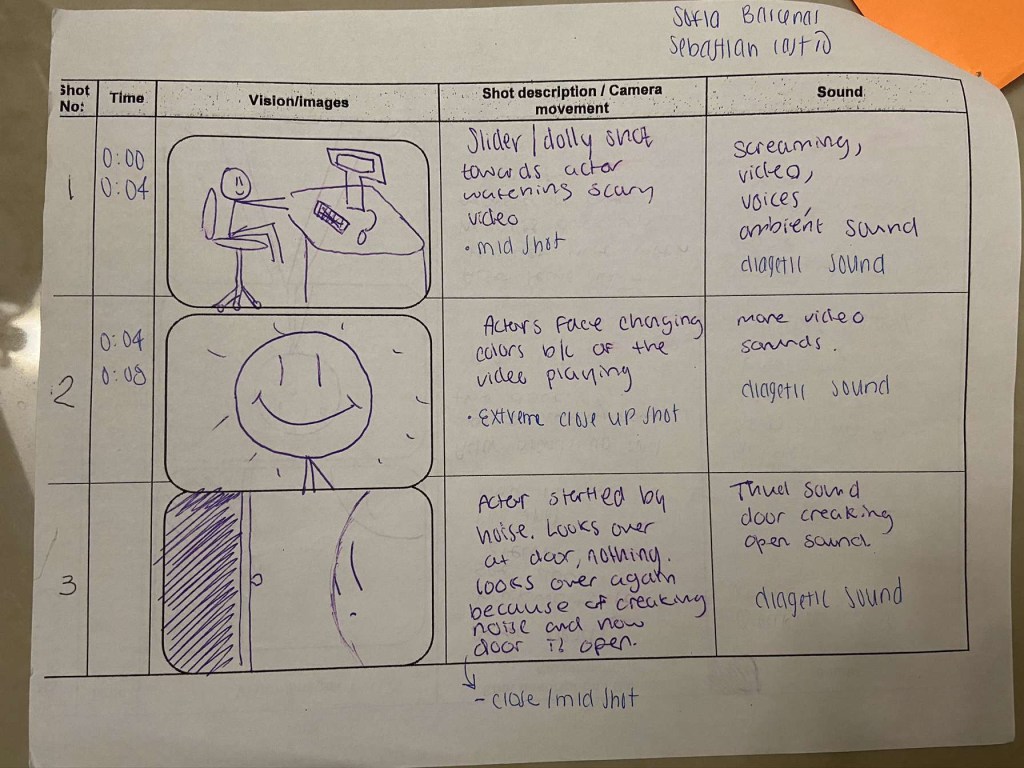 Sofia
Sebastian
Shot No:
Time
Vision/images
Shot description / Camera movement
Sound
1
0:00
0:04
Slider / dolly shot
towards actor
watching scary
video
• mid shot
screaming,
video,
voices,
ambient sound
diagetic sound
2
0:04
0:08
Actors face changing
colors b/c of the
video playing
• Extreme close up shot
more video
sounds.
diagetic sound
3
Actor startled by
noise. Looks over
at door, nothing.
looks over again
because of creaking
noise and now
door is open.
- close/mid shot
Thud sound
door creaking
open sound.
diagetic sound